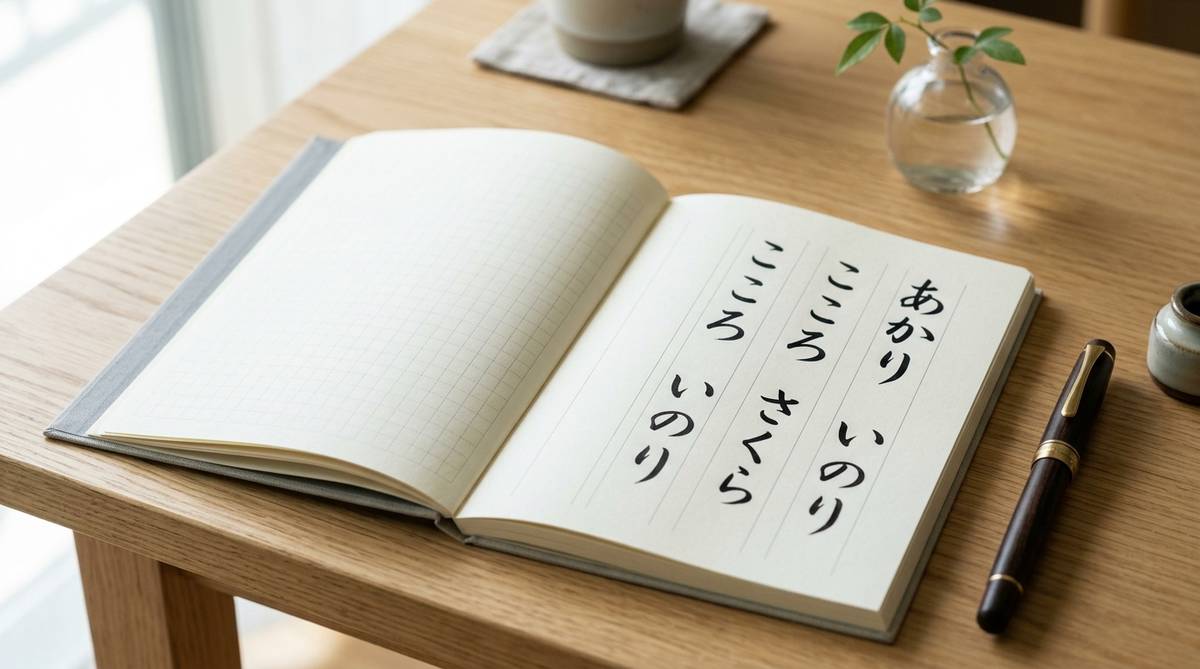 あかり いのり
こころ さくら
こころ いのり